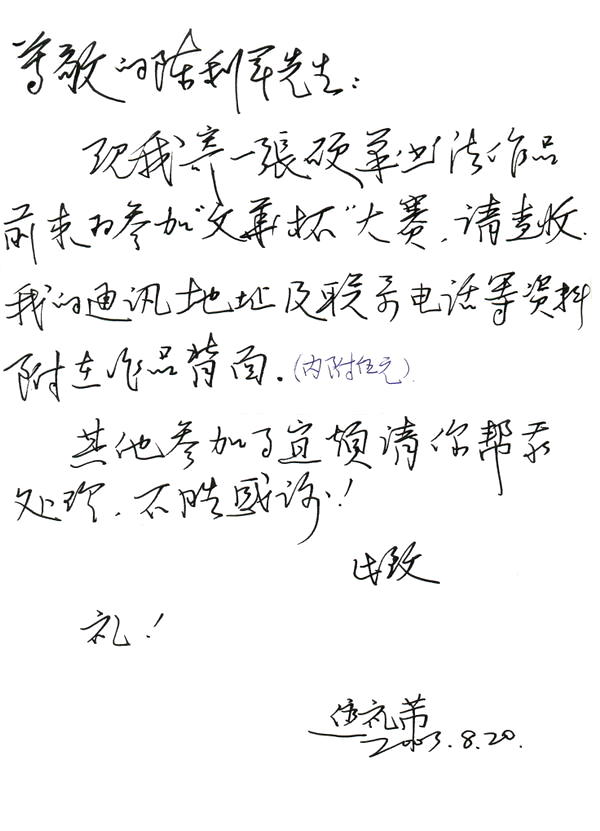 尊敬的陈利军先生：
现我寄一張硬笔书法作品
前来为参加“文華杯”大赛，请查收.
我的通讯地址及联系电话等资料
附在作品背面.（内附伍元）
其他参加事宜烦请你帮我
处理，不胜感谢！
此致
礼！
伍礼芾
2003.8.20.